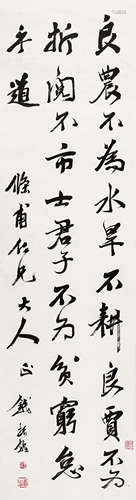 良農不為水旱不耕良賈不為
折閱不市士君子不為貧窮怠
乎道
修甫仁兄大人 正 錢